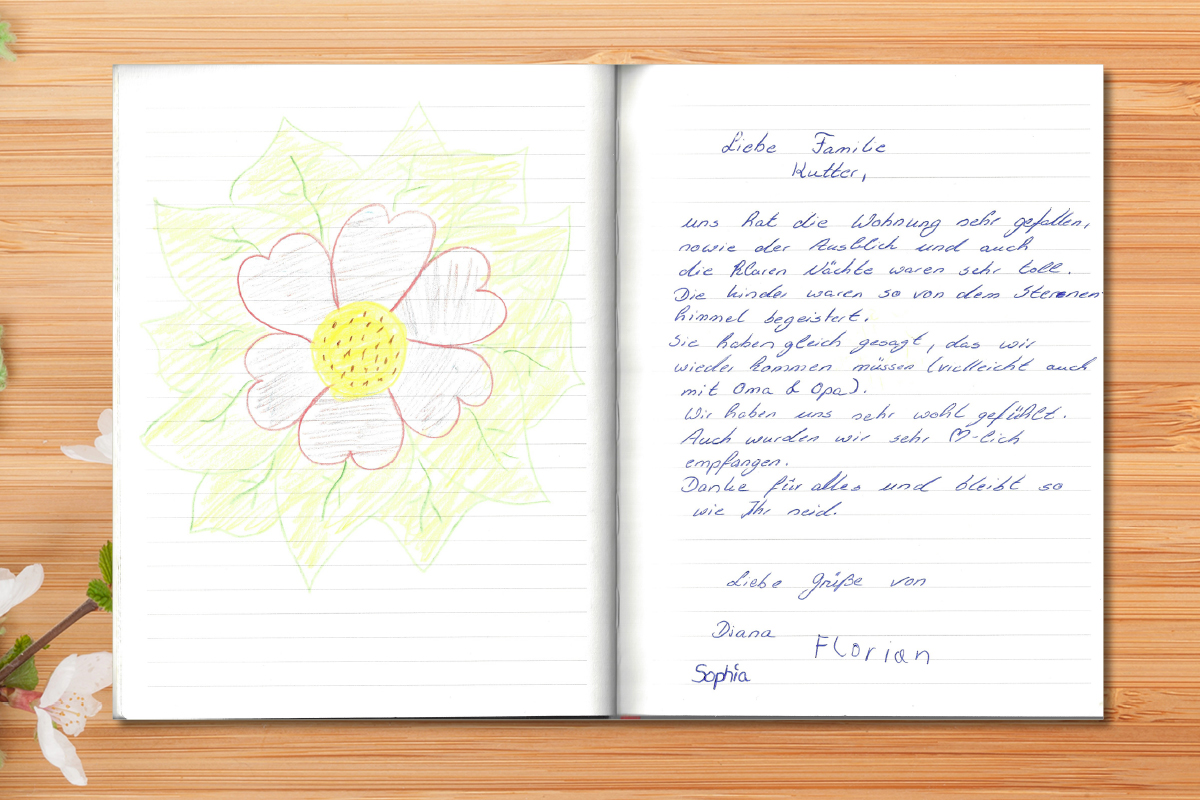 Liebe Familie
Kutter,
uns hat die Wohnung sehr gefallen,
sowie der Ausblick und auch
die klaren Nächte waren sehr toll.
Die kinder waren so von dem Sternen
himmel begeistert.
Sie haben gleich gesagt, das wir
wieder kommen müssen (vielleicht auch
mit Oma & Opa).
Wir haben uns sehr wohl gefühlt.
Auch wurden wir sehr ♡-lich
empfangen.
Danke für alles und bleibt so
wie Ihr seid.
Liebe Grüße von
Diana
Florian
Sophia